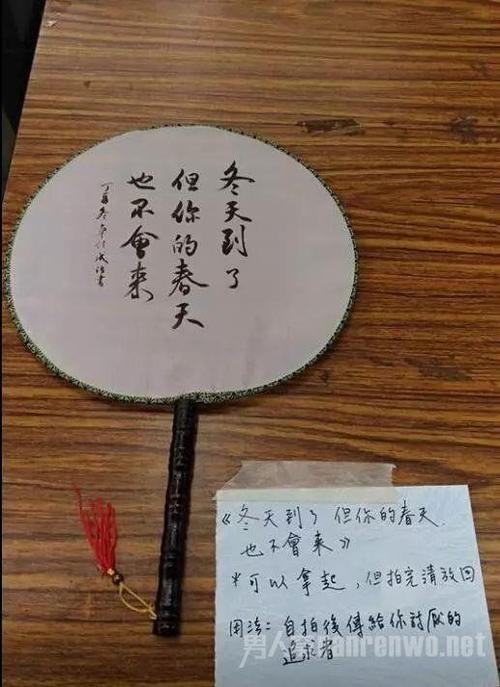 冬天到了
但你的春天
也不會來
《冬天到了 但你的春天
也不會來》
*可以拿起，但拍完請放回
用法：自拍後傳給你討厭的
追求者
男人窝nanrenwo.net